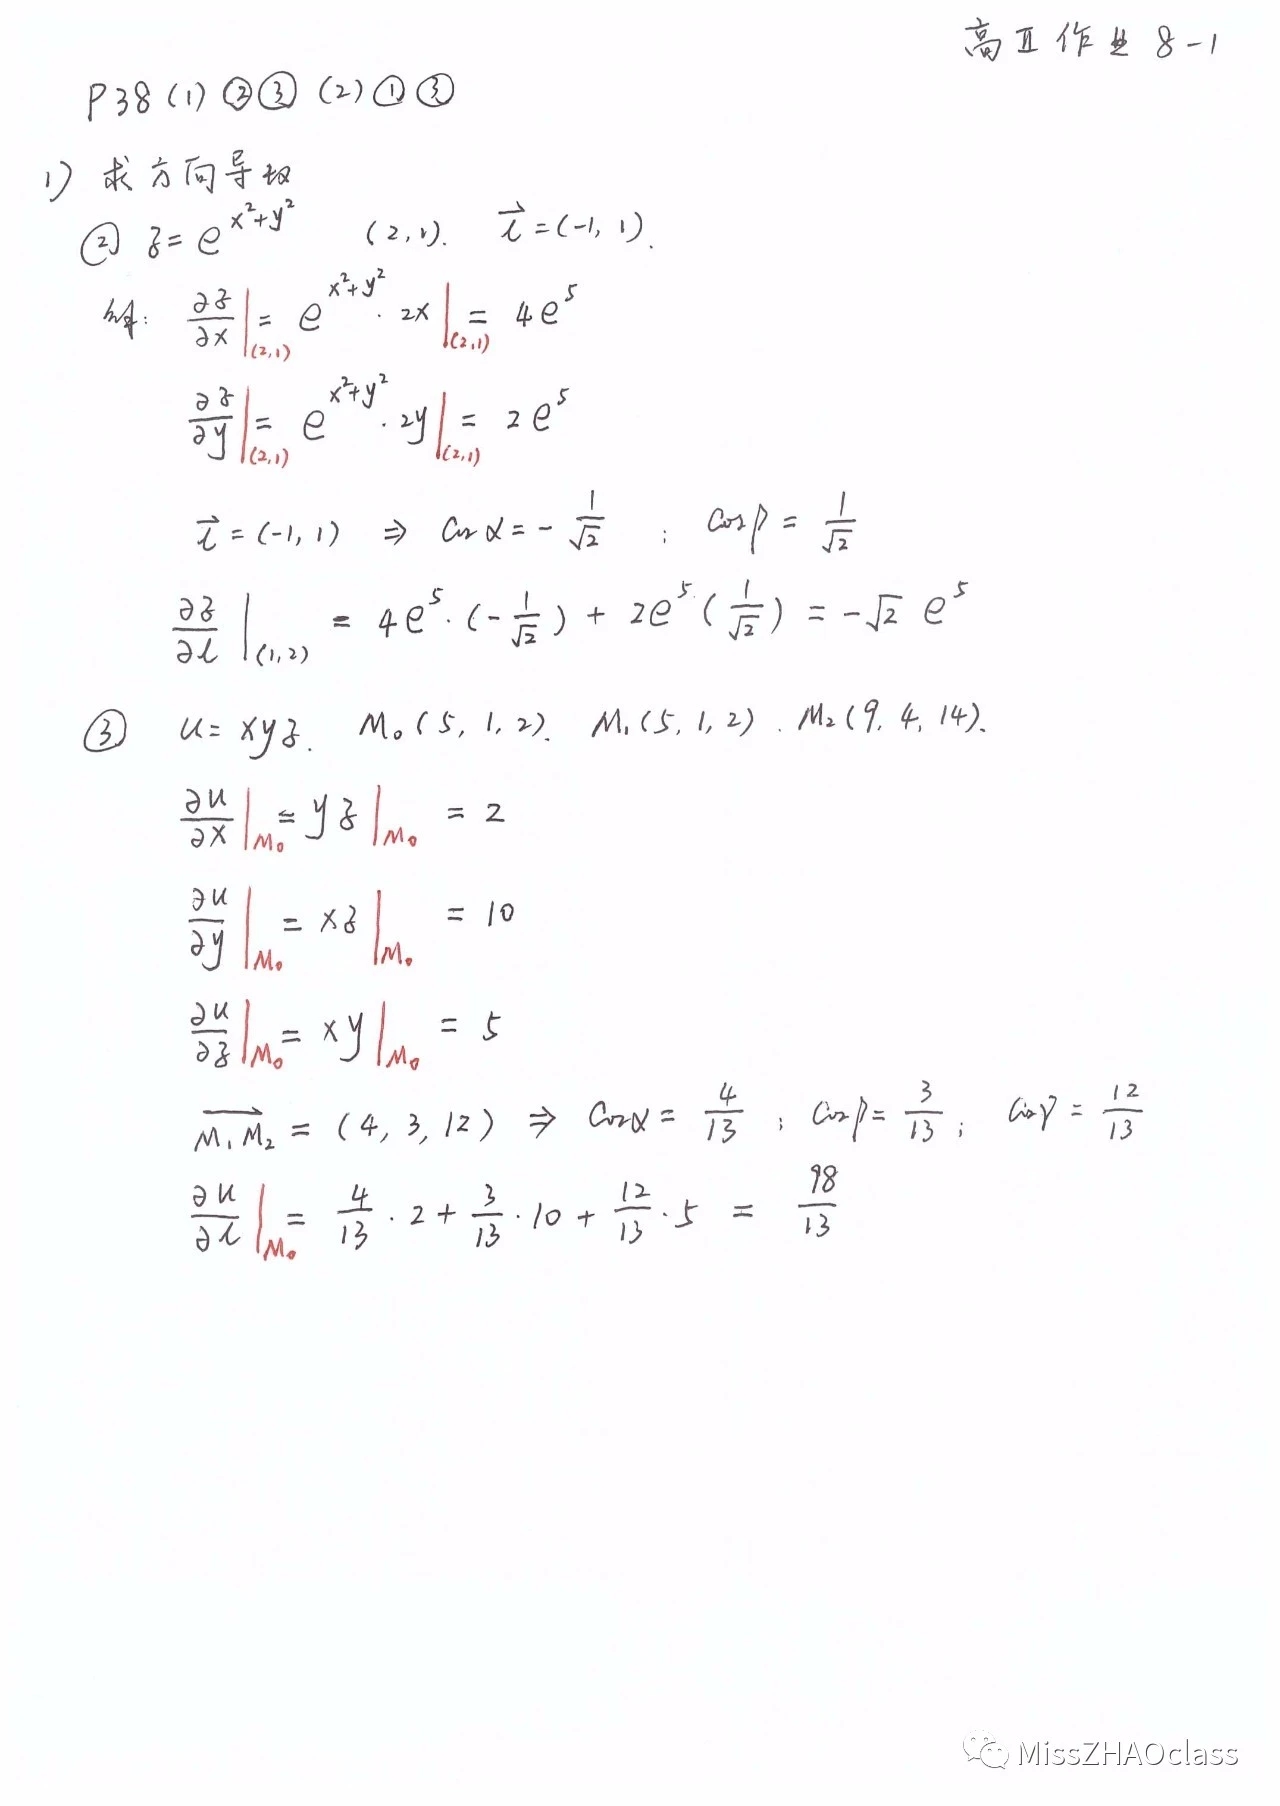 高Ⅱ作业 8-1
P38 (1) ② ③ (2) ① ③
1) 求方向导数
② z = e^{x²+y²} (2,1). l⃗ = (-1, 1).
解: ∂z/∂x |_(2,1) = e^{x²+y²} · 2x |_(2,1) = 4e^5
∂z/∂y |_(2,1) = e^{x²+y²} · 2y |_(2,1) = 2e^5
l⃗ = (-1, 1) ⇒ cosα = - 1/√2 ; cosβ = 1/√2
∂z/∂l |_(1,2) = 4e^5 · (- 1/√2) + 2e^5 · (1/√2) = -√2 e^5
③ u = xyz. M₀(5, 1, 2). M₁(5, 1, 2). M₂(9, 4, 14).
∂u/∂x |_M₀ = yz |_M₀ = 2
∂u/∂y |_M₀ = xz |_M₀ = 10
∂u/∂z |_M₀ = xy |_M₀ = 5
M₁M₂⃗ = (4, 3, 12) ⇒ cosα = 4/13 ; cosβ = 3/13 ; cosγ = 12/13
∂u/∂l |_M₀ = 4/13 · 2 + 3/13 · 10 + 12/13 · 5 = 98/13
MissZHAOclass